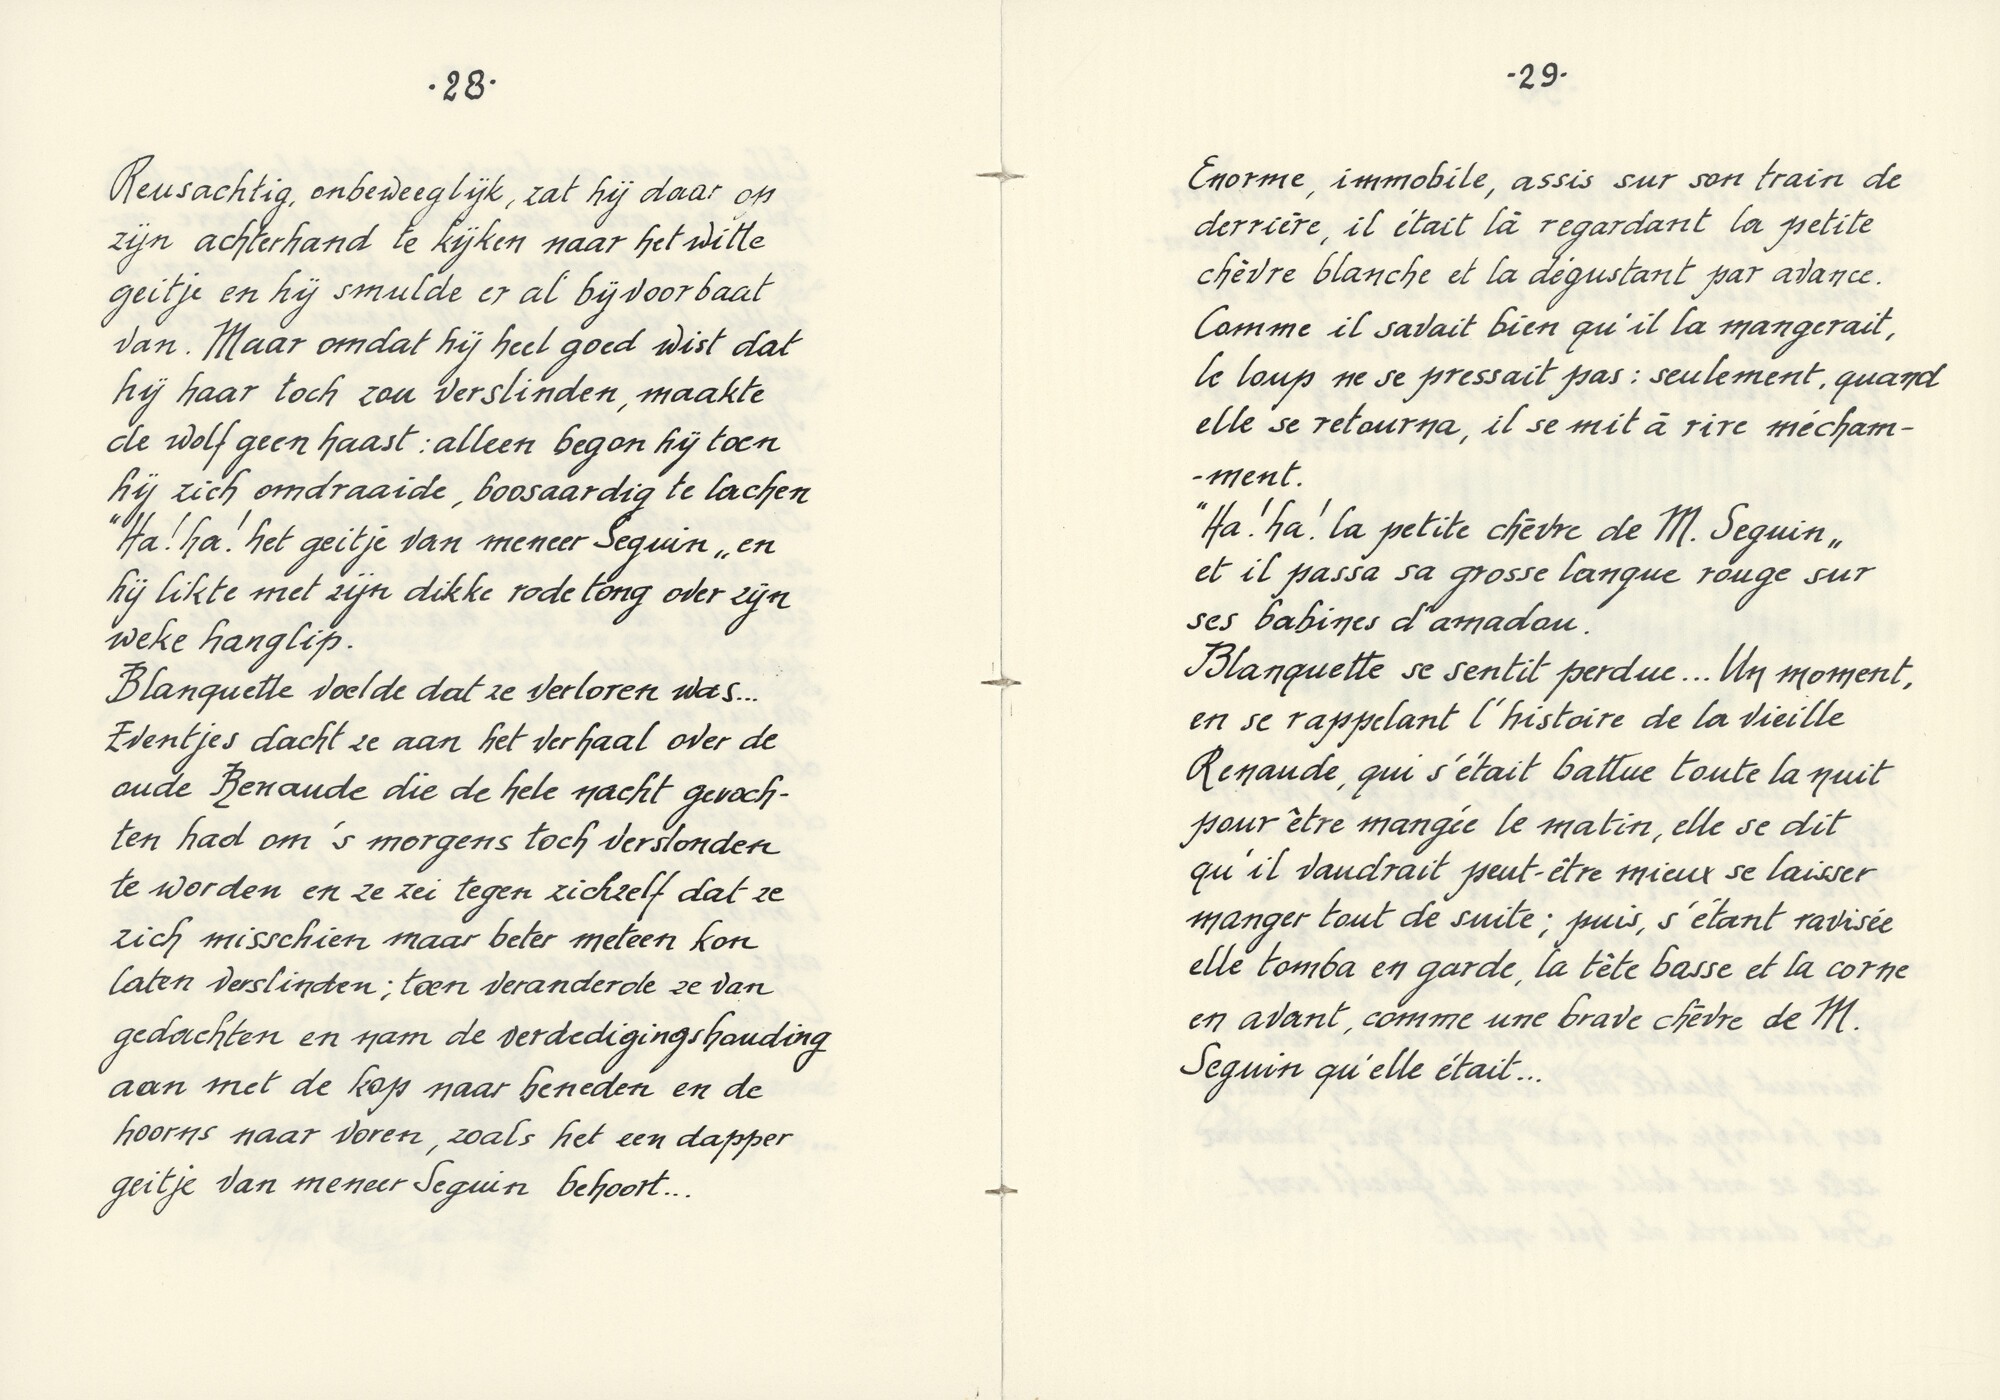 ·28·
Reusachtig, onbeweeglijk, zat hij daar op
zijn achterhand te kijken naar het witte
geitje en hij smulde er al bij voorbaat
van. Maar omdat hij heel goed wist dat
hij haar toch zou verslinden, maakte
de wolf geen haast : alleen begon hij toen
hij zich omdraaide, boosaardig te lachen
"Ha! ha! het geitje van meneer Seguin„ en
hij likte met zijn dikke rode tong over zijn
weke hanglip.
Blanquette voelde dat ze verloren was...
Eventjes dacht ze aan het verhaal over de
oude Renaude die de hele nacht gevoch-
ten had om 's morgens toch verslonden
te worden en ze zei tegen zichzelf dat ze
zich misschien maar beter meteen kon
laten verslinden ; toen veranderde ze van
gedachten en nam de verdedigingshouding
aan met de kop naar beneden en de
hoorns naar voren, zoals het een dapper
geitje van meneer Seguin behoort...
-29-
Enorme, immobile, assis sur son train de
derrière, il était là regardant la petite
chèvre blanche et la dégustant par avance.
Comme il savait bien qu'il la mangerait,
le loup ne se pressait pas : seulement, quand
elle se retourna, il se mit à rire mécham-
-ment.
"Ha! ha! la petite chèvre de M. Seguin„
et il passa sa grosse langue rouge sur
ses babines d'amadou.
Blanquette se sentit perdue... Un moment,
en se rappelant l'histoire de la vieille
Renaude, qui s'était battue toute la nuit
pour être mangée le matin, elle se dit
qu'il vaudrait peut-être mieux se laisser
manger tout de suite ; puis, s'étant ravisée
elle tomba en garde, la tête basse et la corne
en avant, comme une brave chèvre de M.
Seguin qu'elle était...